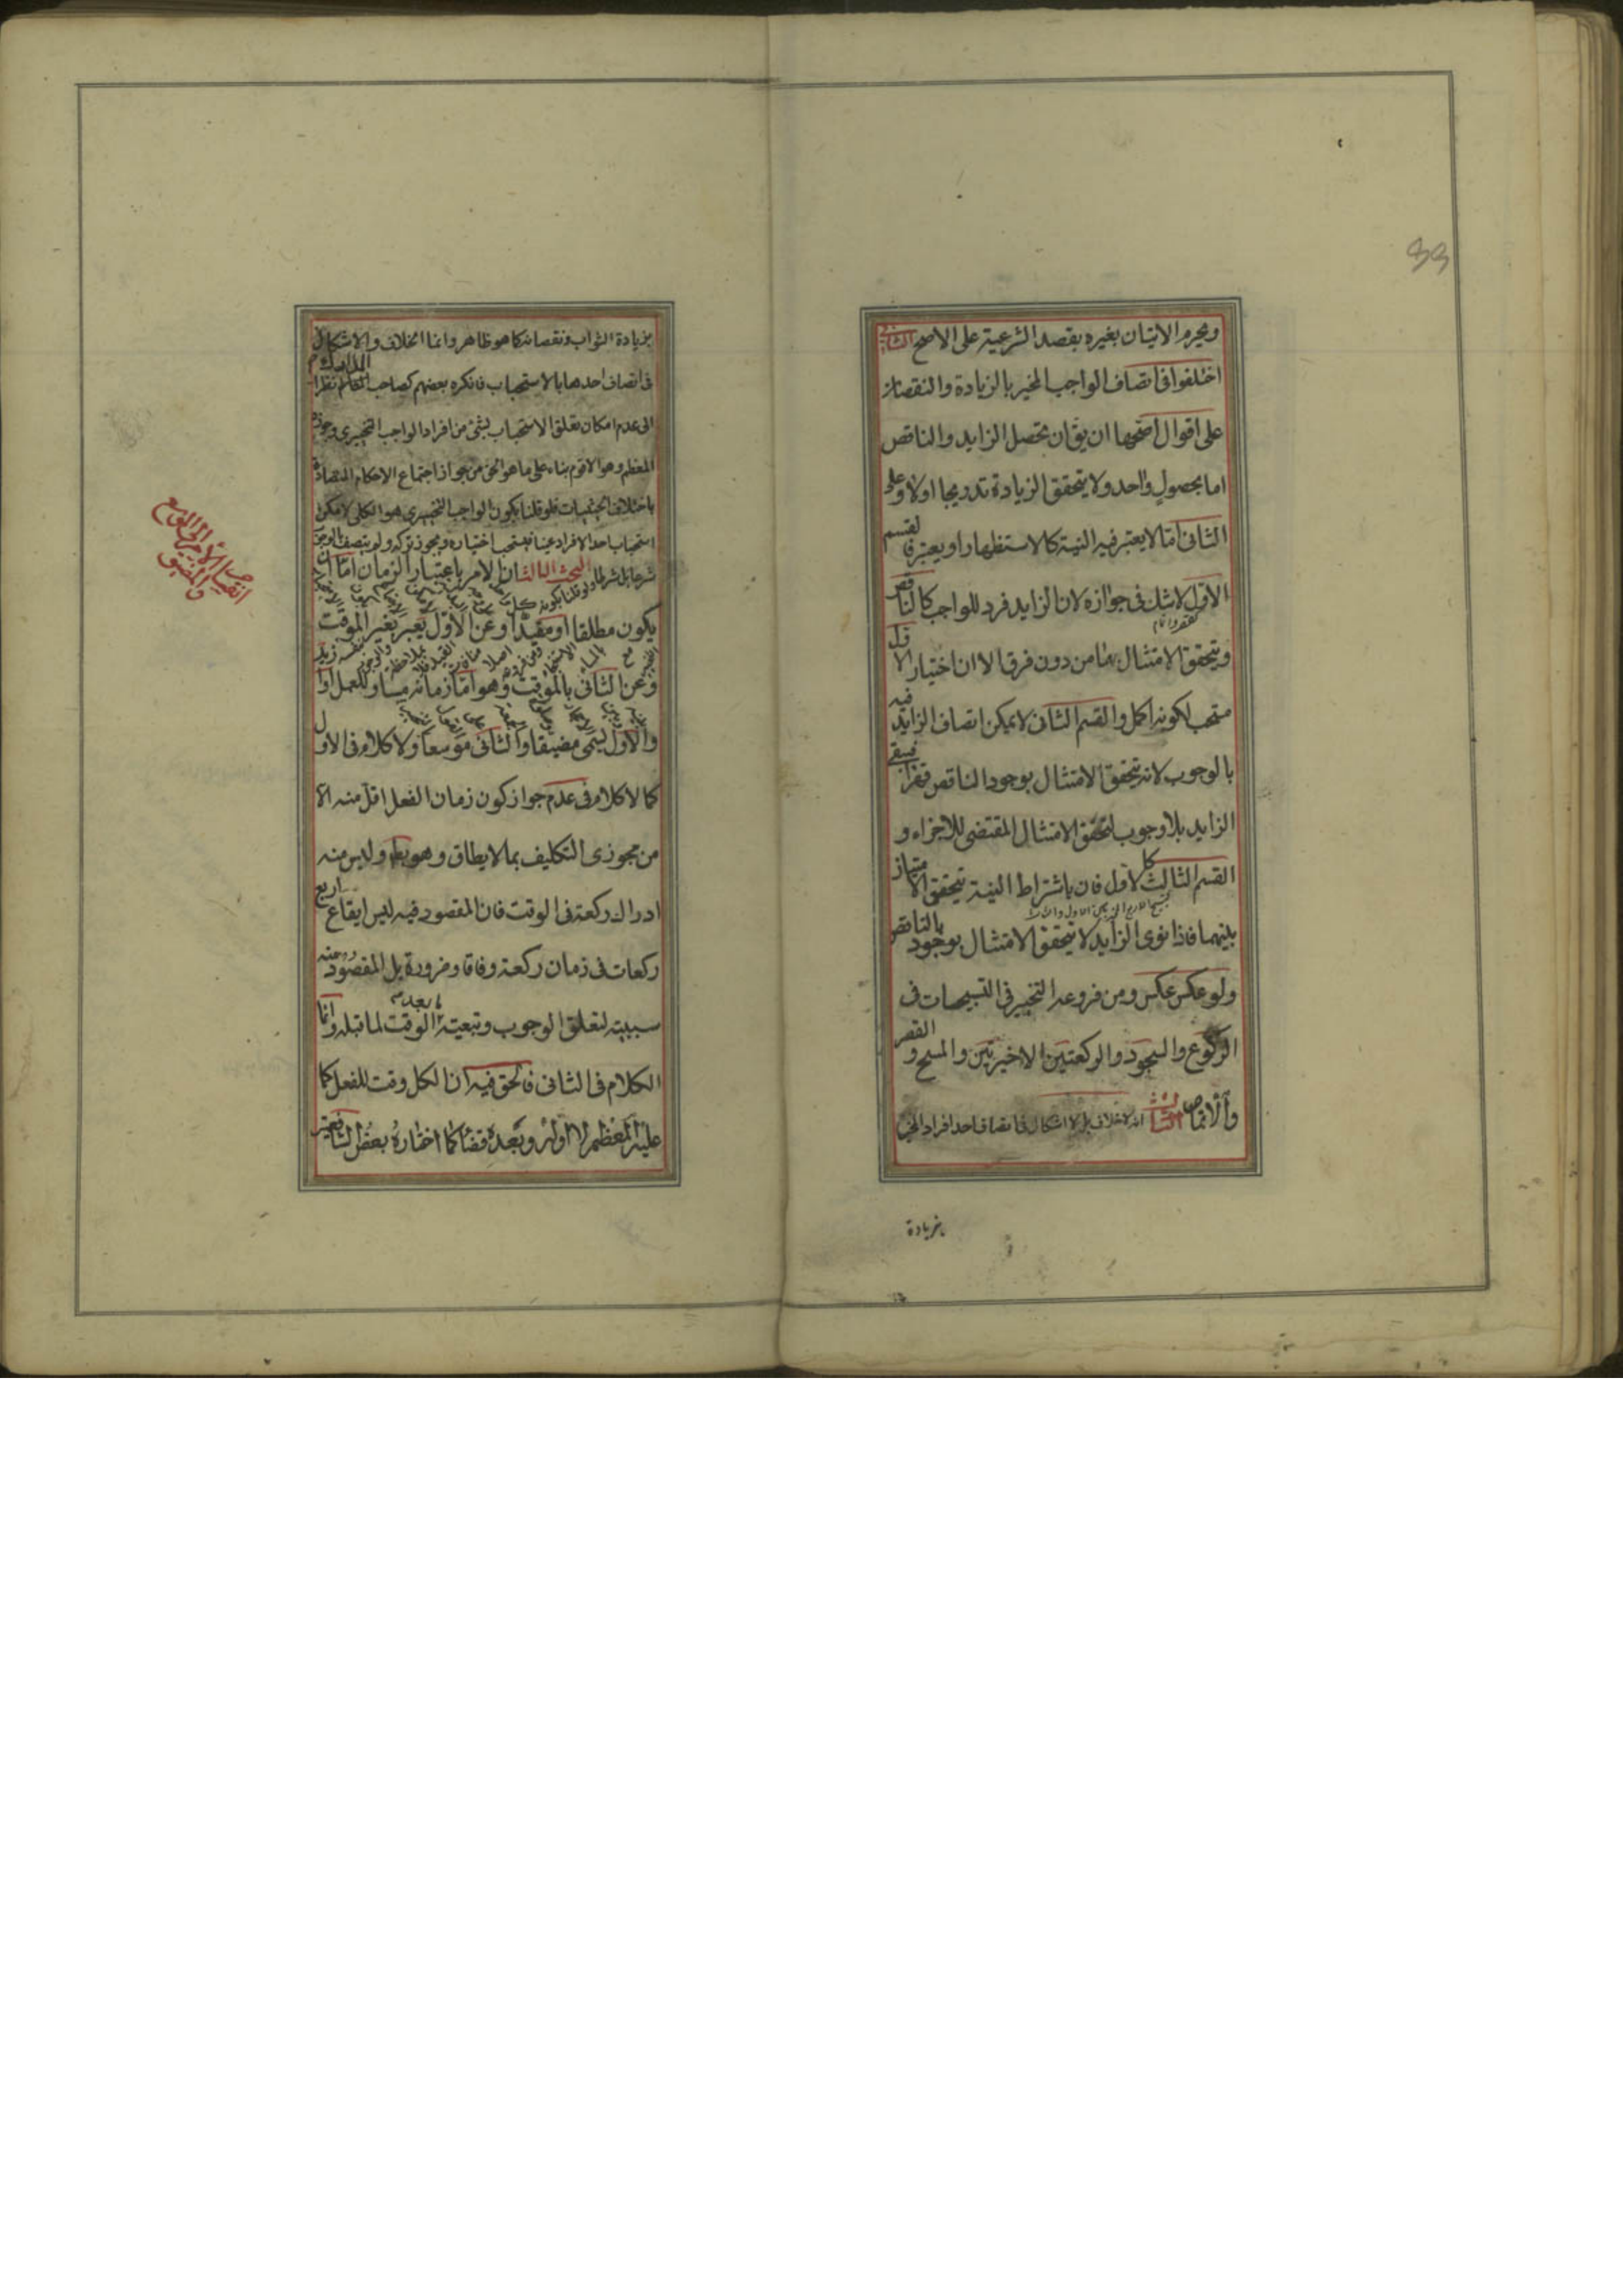 ويحرم الاتيان بغيره بقصد الشرعية على الاصح الثانى
اختلفوا فى اتصاف الواجب المخير بالزيادة والنقصان
على اقوال اصحها ان يق ان تحصل الزايد والناقص
اما بحصول واحد ولا يتحقق الزيادة تدريجا اولا وعلى
الثانى امّا لا يعتبر فيه النية كالاستظهار او يعتبر فالقسم
الاوّل لا شك فى جوازه لان الزايد فرد للواجب كالناقص
كقصر واتمام
ويتحقق الامتثال بهما من دون فرق الا ان اختيار الا
متحب لكونه اكمل والقسم الثانى لا يمكن اتصاف الزايد فيه
بالوجوب لانه يتحقق الامتثال بوجود الناقص فيبقى
الزايد بلا وجوب لتحقق الامتثال المقتضى للاجزاء و
القسم الثالث كالاول فان باشتراط النية يتحقق الامتياز
بينهما فاذا نوى الزايد لا يتحقق الامتثال بوجود بالناقص
ولو عكس عكس ومن فروعه التخيير فى التسبيحات فى
الركوع والسجود والركعتين الاخيرتين والمسح و القصر
والاتمام الثالث انه لا خلاف بل لا اشكال فى اتصاف احد افراد المخير
بزيادة
33
بزيادة الثواب ونقصانه كما هو ظاهر وانما الخلاف والاشكال
فى اتصاف احدها بالاستحباب فانكره بعضهم كصاحب المدارك نظرا
الى عدم امكان تعلق الاستحباب بشئ من افراد الواجب التخييرى وجوزه
المعظم وهو الاقوم بناء على ما هو الحق من جواز اجتماع الاحكام المتضادة
باختلاف الحيثيات فلو قلنا بكون الواجب التخييرى هو الكلى لا مكن
استحباب احد الافراد عينا فيستحب اختياره ويجوز تركه ولم يتصف بالوجوب
شرعا بل شرطا ولو قلنا بكونه
البحث الثالث ان الامر باعتبار الزمان امّا ان
يكون مطلقا او مقيدا وعن الاوّل يعبر بغير الموقت
وعن الثانى بالموقت وهو امّا زمانه مساو للعمل او لا
والاول يسمى مضيقا والثانى موسعا ولا كلام فى الاول
كما لا كلام فى عدم جواز كون زمان الفعل اقل منه الا
من مجوزى التكليف بما لا يطاق وهو بط وليس منه
ادراك ركعة فى الوقت فان المقصود فيه ليس ايقاع اربع
ركعات فى زمان ركعة وفاقا وضرورة بل المقصود منه
سببيته لتعلق الوجوب وتبعية ما بعده الوقت لما قبله وانما
الكلام فى الثانى فالحق فيه ان الكل وقت للفعل كما
عليه المعظم لا اوله وبعده قضا كما اختاره بعض الشافعية
انقسام الامر الى الموسع
والمضيق